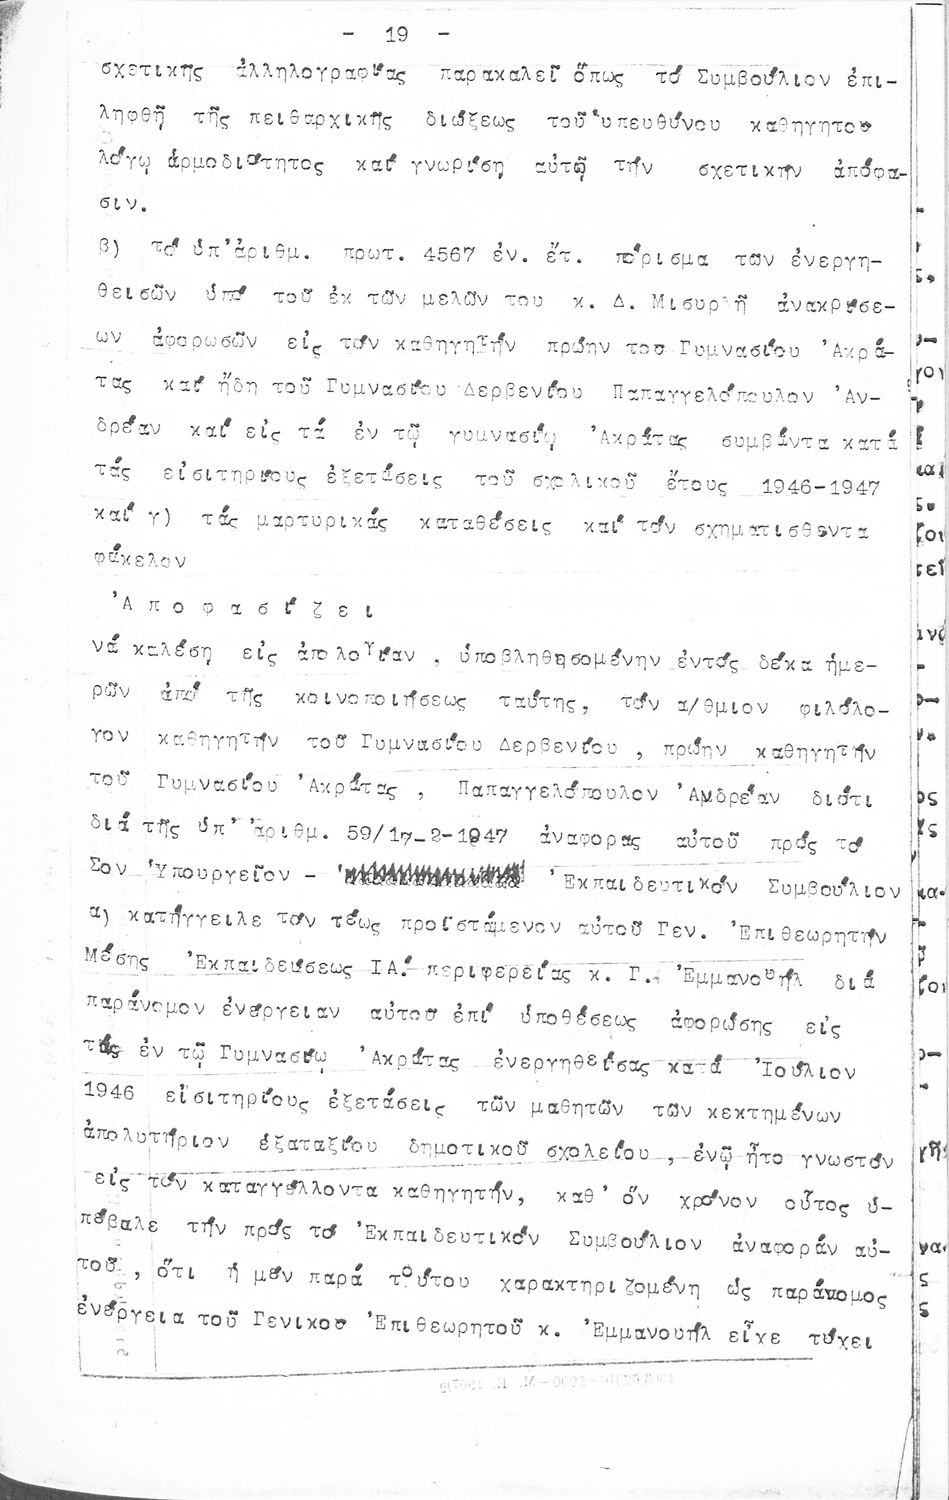 - 19 -
σχετικῆς ἀλληλογραφίας παρακαλεῖ ὅπως τό Συμβούλιον ἐπι-
ληφθῇ τῆς πειθαρχικῆς διώξεως τοῦ ὑπευθύνου καθηγητοῦ
λόγῳ ἁρμοδιότητος καί γνωρίσῃ αὐτῷ τήν σχετικήν ἀπόφα-
σιν.
β) τό ὑπ'ἀριθμ. πρωτ. 4567 ἐν. ἔτ. πόρισμα τῶν ἐνεργη-
θεισῶν ὑπό τοῦ ἐκ τῶν μελῶν του κ. Δ. Μισυρλῆ ἀνακρίσε-
ων ἀφορωσῶν εἰς τόν καθηγητήν πρώην τοῦ Γυμνασίου 'Ακρά-
τας καί ἤδη τοῦ Γυμνασίου Δερβενίου Παπαγγελόπουλον 'Αν-
δρέαν καί εἰς τά ἐν τῷ γυμνασίῳ 'Ακράτας συμβάντα κατά
τάς εἰσιτηρίους ἐξετάσεις τοῦ σχολικοῦ ἔτους 1946-1947
καί γ) τάς μαρτυρικάς καταθέσεις καί τόν σχηματισθέντα
φάκελον
'Α π ο φ α σ ί ζ ε ι
νά καλέσῃ εἰς ἀπολογίαν , ὑποβληθησομένην ἐντός δέκα ἡμε-
ρῶν ἀπό τῆς κοινοποιήσεως ταύτης, τόν α/θμιον φιλόλο-
γον καθηγητήν τοῦ Γυμνασίου Δερβενίου , πρώην καθηγητήν
τοῦ Γυμνασίου 'Ακράτας , Παπαγγελόπουλον 'Ανδρέαν διότι
διά τῆς ὑπ' ἀριθμ. 59/17-2-1947 ἀναφορᾶς αὐτοῦ πρός τό
Σον Ὑπουργεῖον - 'Εκπαιδευτικόν Συμβούλιον
α) κατήγγειλε τόν τέως προϊστάμενον αὐτοῦ Γεν. 'Επιθεωρητήν
Μέσης 'Εκπαιδεύσεως ΙΑ. περιφερείας κ. Γ. 'Εμμανουήλ διά
παράνομον ἐνέργειαν αὐτοῦ ἐπί ὑποθέσεως ἀφορώσης εἰς
τάς ἐν τῷ Γυμνασίῳ 'Ακράτας ἐνεργηθείσας κατά 'Ιούλιον
1946 εἰσιτηρίους ἐξετάσεις τῶν μαθητῶν τῶν κεκτημένων
ἀπολυτήριον ἑξαταξίου δημοτικοῦ σχολείου , ἐνῷ ἦτο γνωστόν
εἰς τόν καταγγέλλοντα καθηγητήν, καθ' ὅν χρόνον οὗτος ὑ-
πέβαλε τήν πρός τό 'Εκπαιδευτικόν Συμβούλιον ἀναφοράν αὐ-
τοῦ , ὅτι ἡ μέν παρά τούτου χαρακτηριζομένη ὡς παράνομος
ἐνέργεια τοῦ Γενικοῦ 'Επιθεωρητοῦ κ. 'Εμμανουήλ εἶχε τύχει